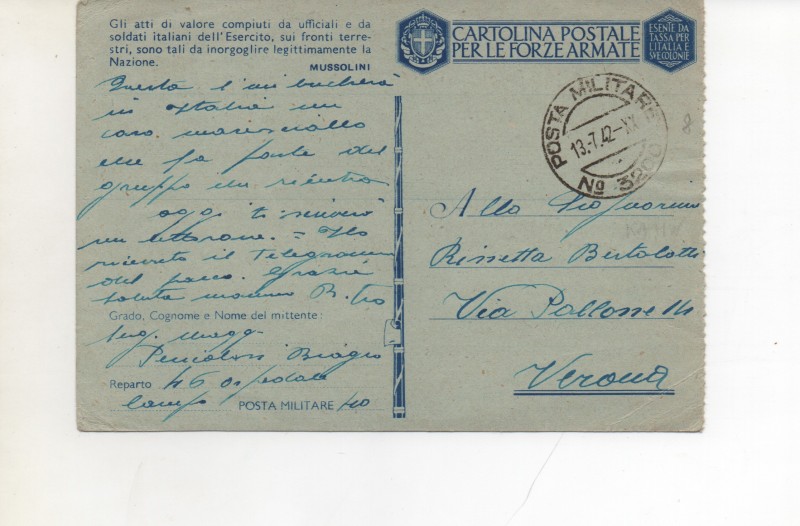 Gli atti di valore compiuti da ufficiali e da
soldati italiani dell'Esercito, sui fronti terre-
stri, sono tali da inorgoglire legittimamente la
Nazione.
MUSSOLINI
CARTOLINA POSTALE
PER LE FORZE ARMATE
ESENTE DA
TASSA PER
L'ITALIA E
SVE COLONIE
POSTA MILITARE
13.7.42-XX
No 3200
8
Questa l'
in Italia un
caro maresciallo
che fa parte del
gruppo
oggi ti scriverò
un letterone. = Ho
ricevuto il Telegramma
del pacco. Grazie
saluta mamma
Grado, Cognome e Nome del mittente:
Serg. Magg.
Biagio
Reparto 46 Ospedale
Campo POSTA MILITARE 110
Alla Signorina
Rissetta Bertolotti
Via
Verona